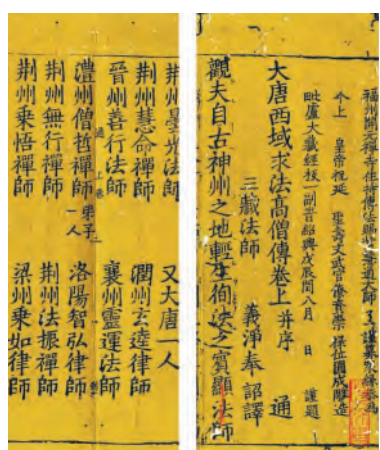 福州開元禪寺住持傳法賜紫慧通大師了一謹募衆緣恭為
今上 皇帝祝延 聖壽文武官僚資崇祿位圓成雕造
毗盧大藏經板一副峕紹興戊辰閏八月 日 謹題
大唐西域求法高僧傳卷上 并序 通
三藏法師 義淨奉 詔譯
觀夫自古神州之地輕生徇法之賓顯法師
荊州曇光法師 又大唐一人
荊州慧命禪師 潤州玄逵律師
晉州善行法師 襄州靈運法師
通 上卷 一
澧州僧哲禪師 弟子一人 洛陽智弘律師
荊州無行禪師 荊州法振禪師
荊州乘悟禪師 梁州乘如律師